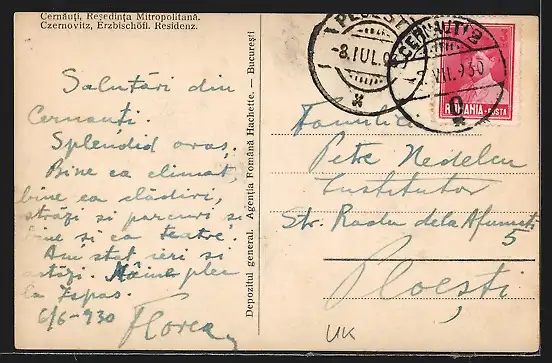 Cernăuți, Reședința Mitropolitană.
Czernovitz, Erzbischöfl. Residenz.
Salutări din
Cernauți.
Splendid oraș.
Bine ca climat,
bine ca clădiri,
străzi si parcuri, si
bine si ca teatre.
Am stat ieri si
astăzi. Mâine plec
la Zspas.
6/6-930
Florea
Depozitul general. Agenția Română Hachette. — București
PLOESTI
-8.IUL.9
CERNAUTI 2
VII.930
ROMANIA-POSTA
Familia
Petre Nedelcu
Institutor
Str. Radu dela Afumați
5
Ploești
UK